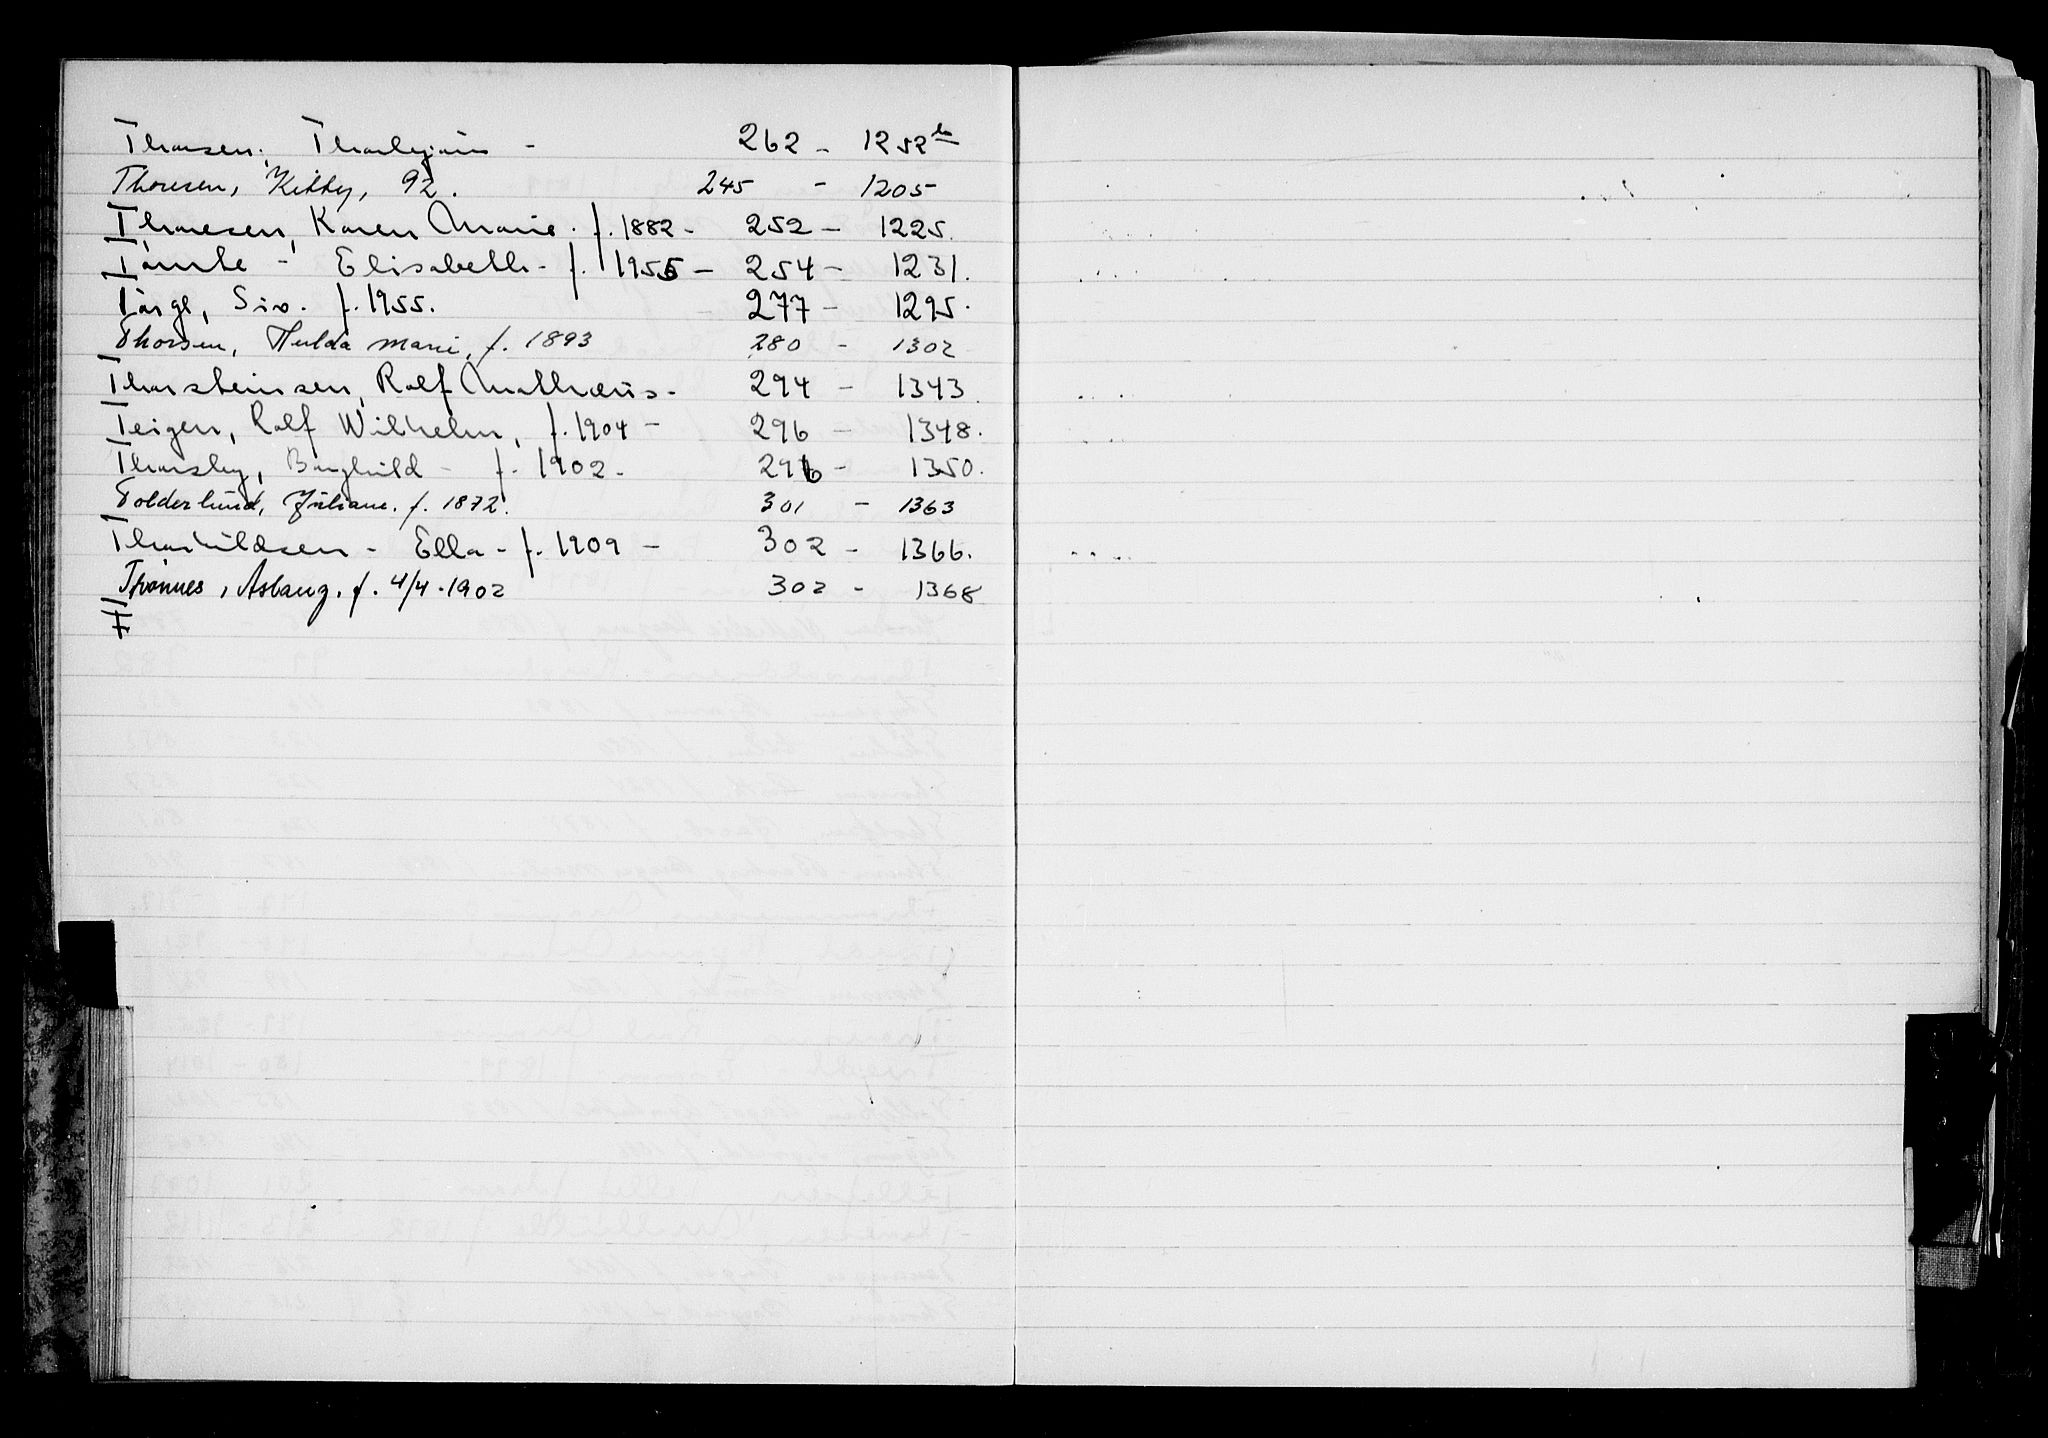 Thorsen, Thorbjørn - 262 - 1252 b
Thoresen, Kitty, 92. 245 - 1205
Thoresen, Karen Marie. f. 1882 - 252 - 1225.
Tømte - Elisabeth - f. 1955 - 254 - 1231.
Siv. f. 1955. 277 - 1295.
Thorsen, Hulda Marie, f. 1893 280 - 1302
Thorsteinsen, Rolf Mathæus - 294 - 1343
Teigen, Rolf Wilhelm, f. 1904 - 296 - 1348.
Thorsby, Borghild - f. 1902. 296 - 1350.
Tolderlund, Juliane. f. 1872. 301 - 1363
Thorkildsen - Ella - f. 1909 - 302 - 1366.
Thønnes, Aslaug. f. 4/4 - 1902 302 - 1368